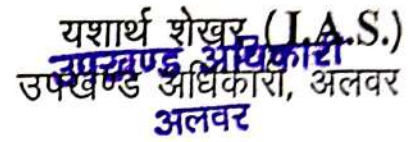 यशार्थ शेखर (I.A.S.)
उपखण्ड अधिकारी
उपखण्ड अधिकारी, अलवर
अलवर